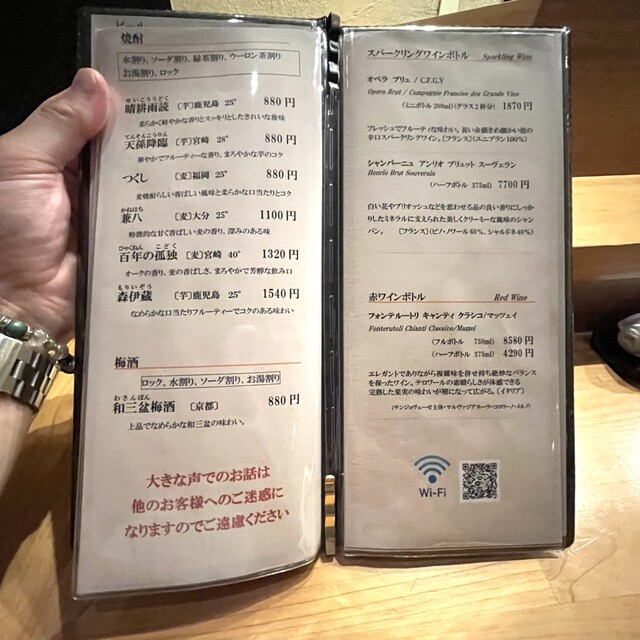 焼酎
水割り、ソーダ割り、緑茶割り、ウーロン茶割り
お湯割り、ロック
せいこううどく
晴耕雨読 〔芋〕鹿児島 25° 880円
柔らかく軽やかな香りとスッキリとしたきれいな後味
てんそんこうりん
天孫降臨 〔芋〕宮崎 28° 880円
華やかでフルーティーな香り、まろやかな芋のコク
つくし 〔麦〕福岡 25° 880円
麦焼酎らしい香ばしい風味と柔らかな口当たりとコク
かねはち
兼八 〔麦〕大分 25° 1100円
特徴的な甘く香ばしい麦の香り、深みのある味
ひゃくねん こどく
百年の孤独 〔麦〕宮崎 40° 1320円
オークの香り、麦の香ばしさ、まろやかで芳醇な飲み口
もりいぞう
森伊蔵 〔芋〕鹿児島 25° 1540円
なめらかな口当たりフルーティーでコクのある味わい
梅酒
ロック、水割り、ソーダ割り、お湯割り
わさんぼん
和三盆梅酒 〔京都〕 880円
上品でなめらかな和三盆の味わい。
大きな声でのお話は
他のお客様へのご迷惑に
なりますのでご遠慮ください
スパークリングワインボトル Sparkling Wine
オペラ ブリュ / C.F.G.V
Opera Brut / Compagnie Francise des Grands Vins
(ミニボトル 200ml)(グラス2杯分) 1870円
フレッシュでフルーティな味わい。長い余韻きめ細かい泡の
辛口スパークリングワイン。〔フランス〕(ユニブラン100%)
シャンパーニュ アンリオ ブリュット スーヴェラン
Henrio Brut Souverain
(ハーフボトル 375ml) 7700円
白い花やブリオッシュなどを思わせる品の良い香りにしっか
りしたミネラルに支えられた美しくクリーミーな風味のシャン
パン。 〔フランス〕(ピノ・ノワール60%、シャルドネ40%)
赤ワインボトル Red Wine
フォンテルートリ キャンティ クラシコ/マッツェイ
Fonterutoli Chianti Classico/Mazzei
(フルボトル 750ml) 8580円
(ハーフボトル 375ml) 4290円
エレガントでありながら複雑味を併せ持ち絶妙なバランス
を保ったワイン。テロワールの素晴らしさが体感できる
完熟した果実の味わいが層になって広がる。〔イタリア〕
(サンジョヴェーゼ主体・マルヴァジアネーラ・コロリーノ・メルノ)
Wi-Fi